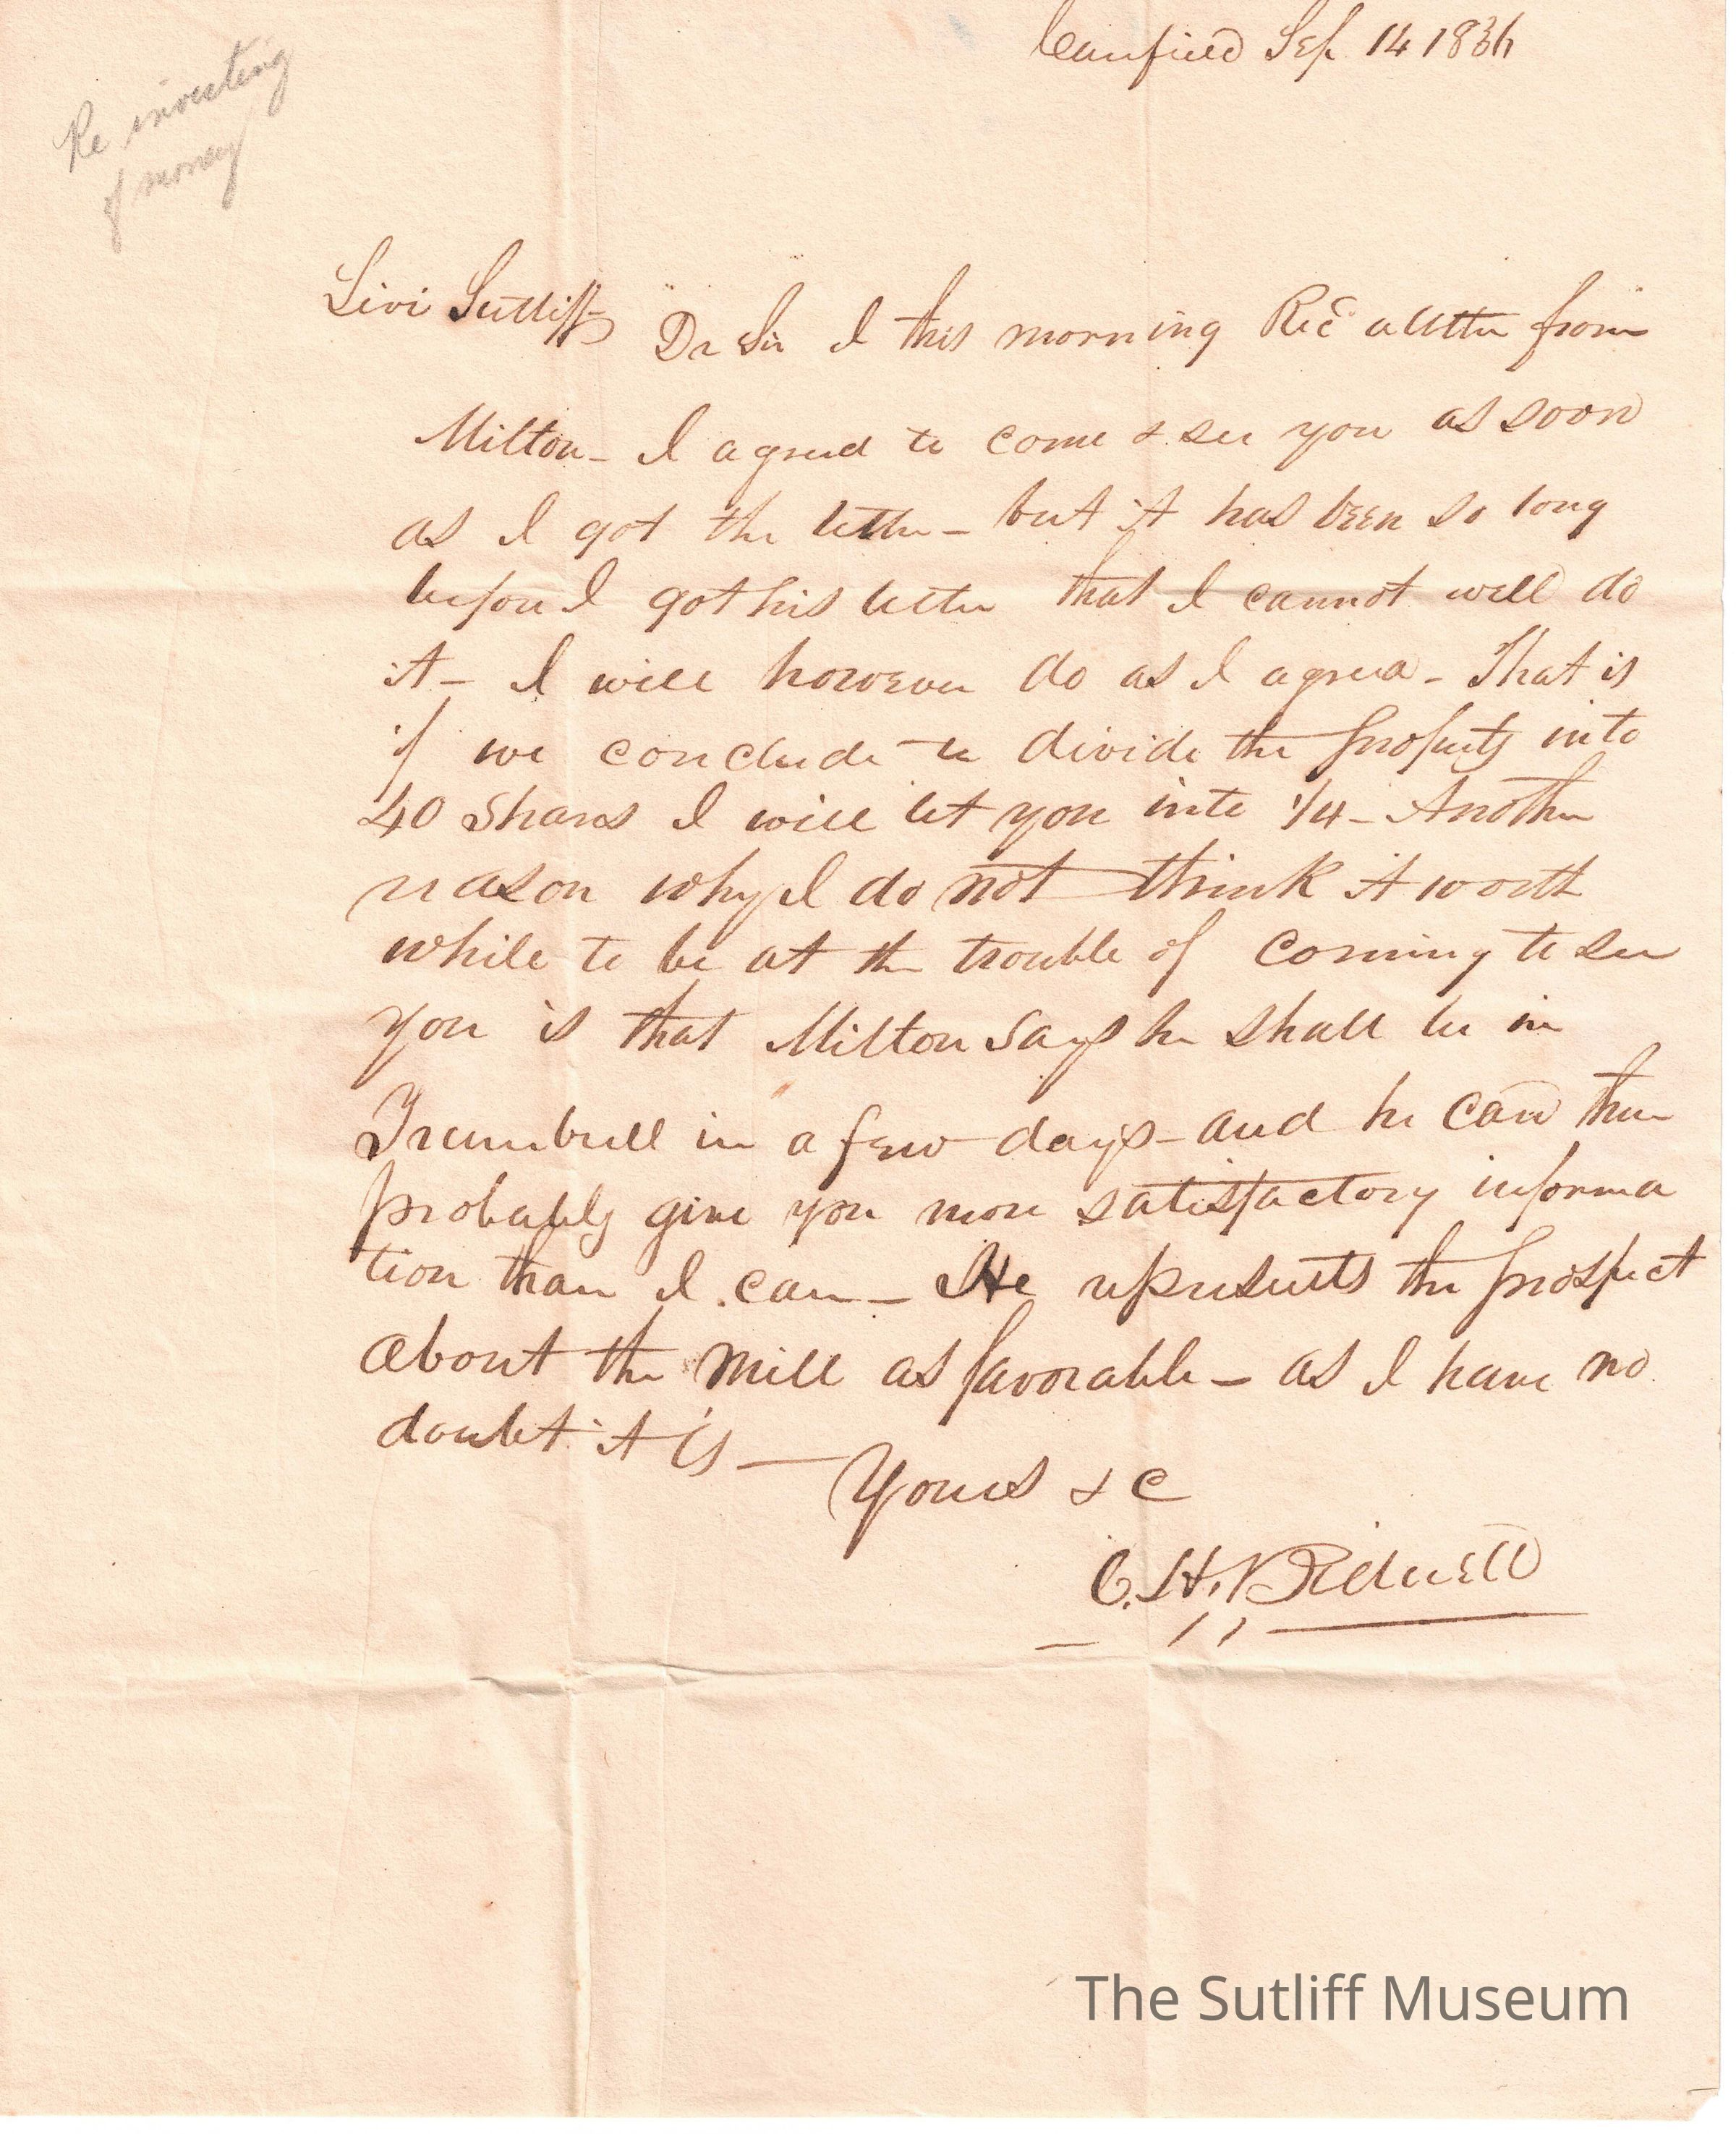 Canfield Sep. 14 1836
Re investing
of money
Levi Sutliff
Dr Sir I this morning Recd a letter from
Milton - I agreed to come & see you as soon
as I got the letter - but it has been so long
before I got his letter that I cannot well do
it - I will however do as I agreed - That is
if we conclude to divide the property into
40 shares I will let you into 1/4 - Another
reason why I do not think it worth
while to be at the trouble of coming to see
you is that Milton says he shall be in
Trumbull in a few days - and he can then
probably give you more satisfactory informa
tion than I can - He represents the prospect
about the mill as favorable - as I have no
doubt it is —
Yours & c
C. H.
The Sutliff Museum